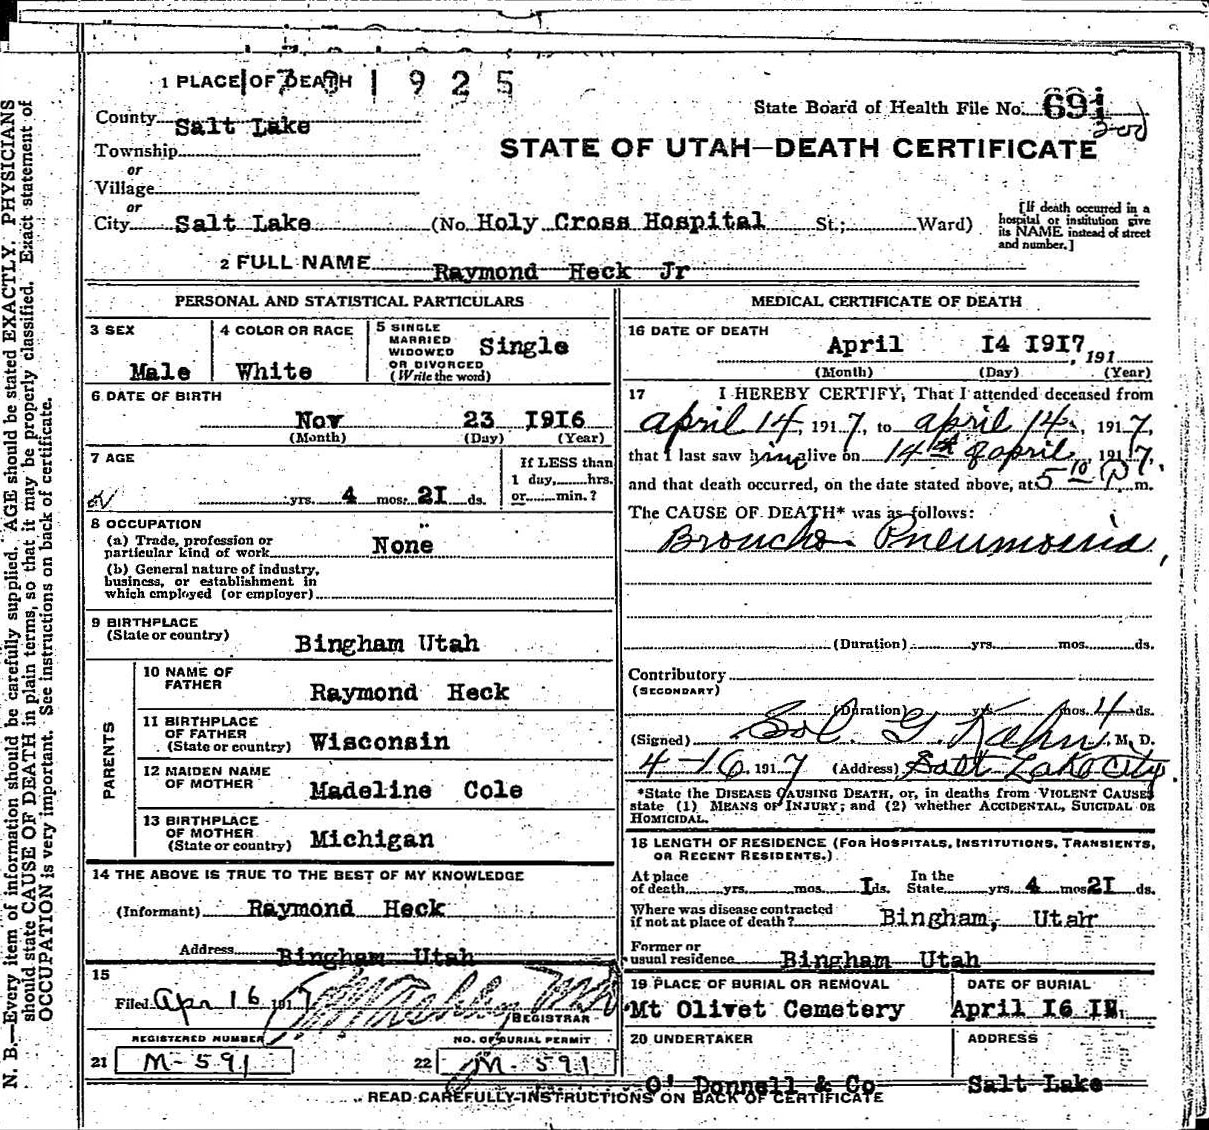 N. B.—Every item of information should be carefully supplied. AGE should be stated EXACTLY. PHYSICIANS
should state CAUSE OF DEATH in plain terms, so that it may be properly classified. Exact statement of
OCCUPATION is very important. See instructions on back of certificate.
1 PLACE OF DEATH
1925
State Board of Health File No. 691
County Salt Lake
STATE OF UTAH—DEATH CERTIFICATE
Township
or
Village
or
City Salt Lake (No. Holy Cross Hospital St.; Ward)
[If death occurred in a
hospital or institution give
its NAME instead of street
and number.]
2 FULL NAME Raymond Heck Jr
PERSONAL AND STATISTICAL PARTICULARS
3 SEX
Male
4 COLOR OR RACE
White
5 SINGLE
MARRIED
WIDOWED
OR DIVORCED
(Write the word)
Single
6 DATE OF BIRTH
Nov 23 1916
(Month) (Day) (Year)
7 AGE
yrs. 4 mos. 21 ds.
If LESS than
1 day, hrs.
or min.?
8 OCCUPATION
(a) Trade, profession or
particular kind of work None
(b) General nature of industry,
business, or establishment in
which employed (or employer)
9 BIRTHPLACE
(State or country) Bingham Utah
PARENTS
10 NAME OF
FATHER Raymond Heck
11 BIRTHPLACE
OF FATHER
(State or country) Wisconsin
12 MAIDEN NAME
OF MOTHER Madeline Cole
13 BIRTHPLACE
OF MOTHER
(State or country) Michigan
14 THE ABOVE IS TRUE TO THE BEST OF MY KNOWLEDGE
(Informant) Raymond Heck
Address Bingham Utah
15
Filed Apr 16 1917
REGISTRAR
REGISTERED NUMBER
21 M-591
NO. OF BURIAL PERMIT
22 M-591
MEDICAL CERTIFICATE OF DEATH
16 DATE OF DEATH
April 14 1917, 191
(Month) (Day) (Year)
17 I HEREBY CERTIFY, That I attended deceased from
April 14, 1917, to April 14, 1917,
that I last saw him alive on 14th of April, 1917,
and that death occurred, on the date stated above, at 5 10 P m.
The CAUSE OF DEATH* was as follows:
Broncho Pneumonia,
(Duration) yrs. mos. ds.
Contributory
(SECONDARY)
(Duration) yrs. mos. 4 ds.
(Signed) Sol. G. Kahn, M. D.
4-16, 1917 (Address) Salt Lake City.
*State the DISEASE CAUSING DEATH, or, in deaths from VIOLENT CAUSES
state (1) MEANS OF INJURY; and (2) whether ACCIDENTAL, SUICIDAL OR
HOMICIDAL.
18 LENGTH OF RESIDENCE (FOR HOSPITALS, INSTITUTIONS, TRANSIENTS,
OR RECENT RESIDENTS.)
At place
of death yrs. mos. 1 ds.
In the
State yrs. 4 mos 21 ds.
Where was disease contracted
if not at place of death? Bingham, Utah
Former or
usual residence Bingham Utah
19 PLACE OF BURIAL OR REMOVAL
Mt Olivet Cemetery
DATE OF BURIAL
April 16
20 UNDERTAKER
O'Donnell & Co
ADDRESS
Salt Lake
READ CAREFULLY INSTRUCTIONS ON BACK OF CERTIFICATE